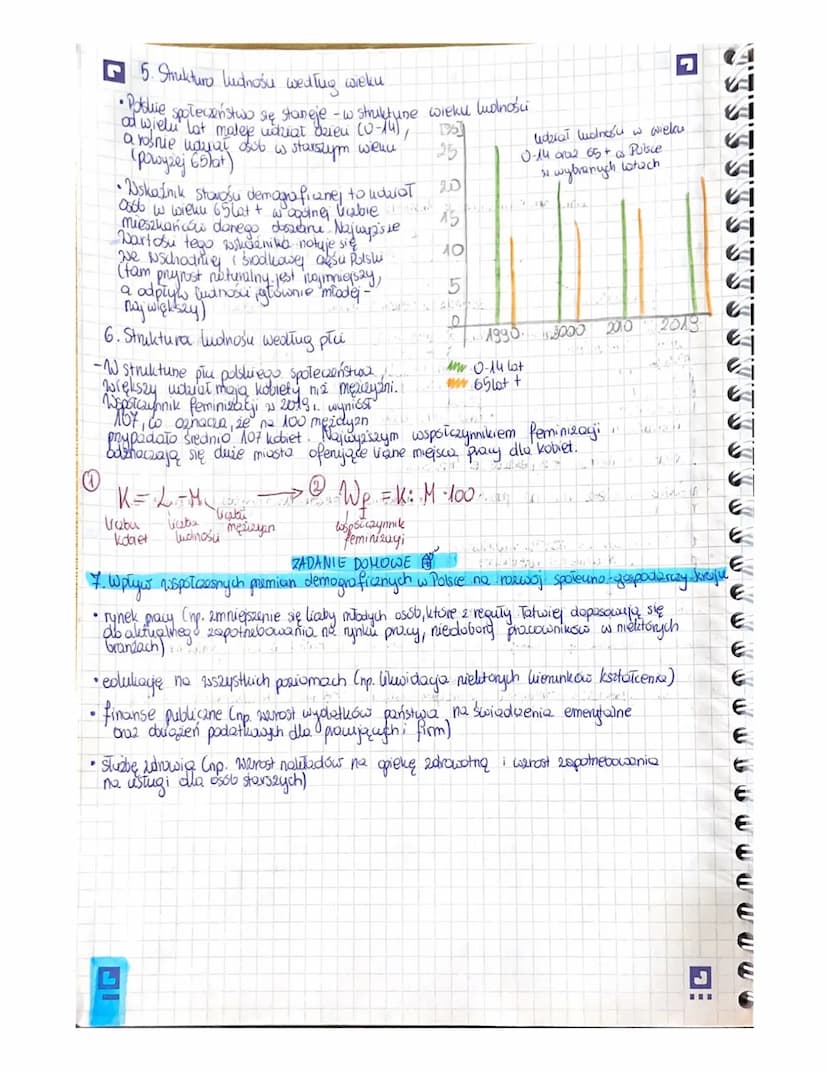 5. Struktura ludności według wieku
• Polskie społeczeństwo się starzeje - w strukturze wieku ludności
od wielu lat maleje udział dzieci (0-14),
a rośnie udział osób w starszym wieku
(powyżej 65 lat)
• Wskaźnik starości demograficznej to udział
osób w wieku 65 lat + w ogólnej liczbie
mieszkańców danego obszaru. Najwyższe
Wartości tego wskaźnika notuje się
we wschodniej i środkowej części Polski
(tam przyrost naturalny jest najmniejszy,
a odpływ ludności, głównie młodej -
największy)
[%]
25
20
15
10
5
0
udział ludności w wieku
0-14 oraz 65+ w Polsce
w wybranych latach
1990 2000 2010 2019
0-14 lat
65 lat +
6. Struktura ludności według płci
- W strukturze płci polskiego społeczeństwa
większy udział mają kobiety niż mężczyźni.
Współczynnik feminizacji w 2019 r. wyniósł
107, co oznacza, że na 100 mężczyzn
przypadało średnio 107 kobiet. Najwyższym współczynnikiem feminizacji
odznaczają się duże miasta oferujące liczne miejsca pracy dla kobiet.
① K = L - M → ② Wf = K : M · 100
liczba kobiet
liczba ludności
liczba mężczyzn
współczynnik feminizacji
ZADANIE DOMOWE
7. Wpływ współczesnych przemian demograficznych w Polsce na rozwój społeczno-gospodarczy kraju
• rynek pracy (np. zmniejszenie się liczby młodych osób, które z reguły łatwiej dopasowują się
do aktualnego zapotrzebowania na rynku pracy, niedobory pracowników w niektórych
branżach)
• edukację na wszystkich poziomach (np. likwidacja niektórych kierunków kształcenia)
• finanse publiczne (np. wzrost wydatków państwa na świadczenia emerytalne
oraz obciążeń podatkowych dla pracujących i firm)
• służbę zdrowia (np. wzrost nakładów na opiekę zdrowotną i wzrost zapotrzebowania
na usługi dla osób starszych)